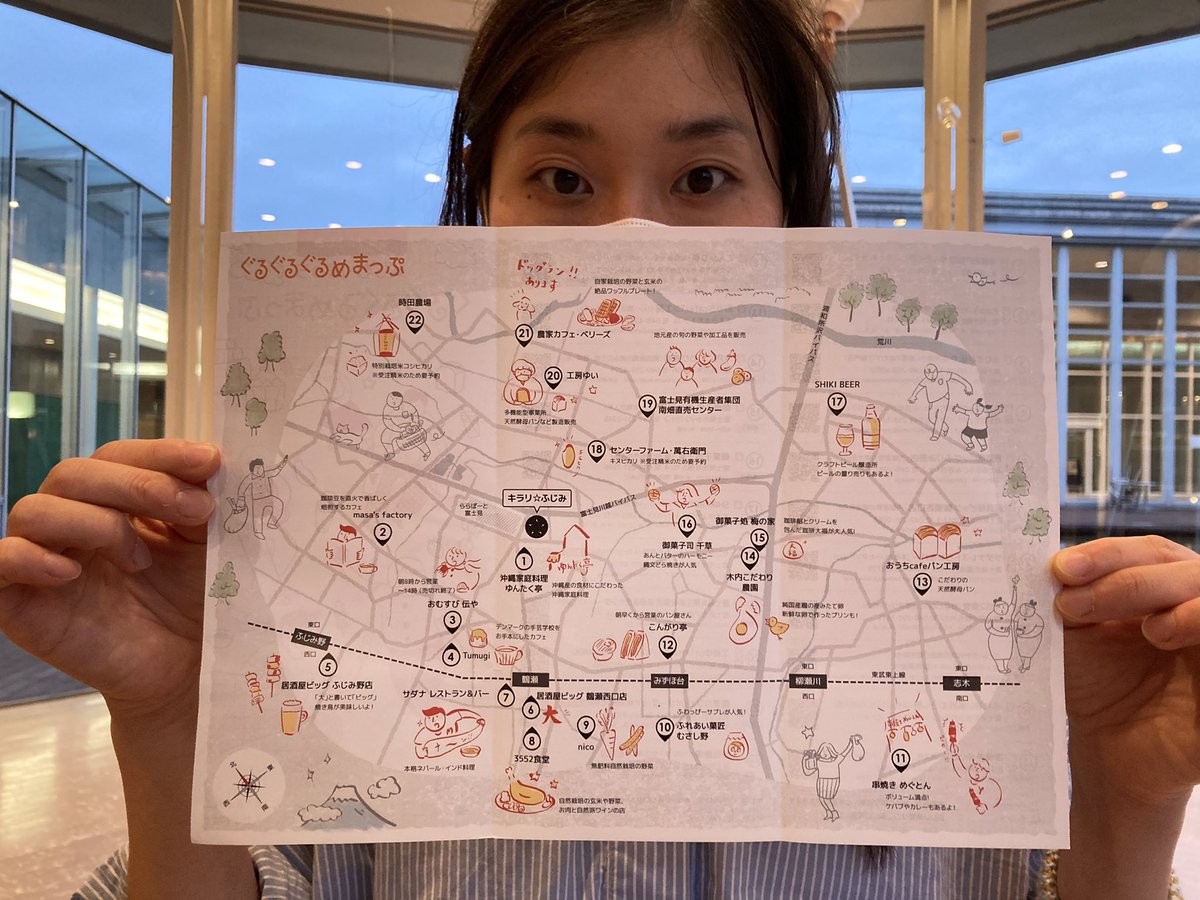 ぐるぐるぐるめまっぷ
ドッグラン!!
あります
時田農場
22
特別栽培米コシヒカリ
※受注精米のため要予約
自家栽培の野菜と玄米の
絶品ワッフルプレート!
21
農家カフェ・ベリーズ
地元産の旬の野菜や加工品を販売
浦和所沢バイパス
荒川
20
工房ゆい
多機能型事業所。
天然酵母パンなど製造販売
19
富士見有機生産者集団
南畑直売センター
SHIKI BEER
17
クラフトビール醸造所
ビールの量り売りもあるよ!
18
センターファーム・萬右衛門
キヌヒカリ ※受注精米のため要予約
珈琲豆を直火で香ばしく
焙煎するカフェ
masa's factory
2
ららぽーと
富士見
キラリ☆ふじみ
富士見川越バイパス
16
御菓子司 千草
あんとバターのハーモニー
縄文どら焼きが人気
御菓子処 梅の家
15
珈琲餡とクリームを
包んだ珈琲大福が大人気!
14
木内こだわり
農園
純国産鶏の産みたて卵
新鮮な卵で作ったプリンも!
おうちcafeパン工房
13
こだわりの
天然酵母パン
1
沖縄家庭料理
ゆんたく亭
ゆんたく亭
沖縄産の食材にこだわった
沖縄家庭料理
朝8時から営業
〜14時(売切れ終了)
おむすび 伝や
3
デンマークの手芸学校を
お手本にしたカフェ
4
Tumugi
朝早くから営業のパン屋さん
こんがり亭
12
東口
ふじみ野
西口
5
居酒屋ビッグ ふじみ野店
「大」と書いて「ビッグ」
焼き鳥が美味しいよ!
サダナ レストラン&バー
7
本格ネパール・インド料理
鶴瀬
6
居酒屋ビッグ 鶴瀬西口店
大
8
3552食堂
自然栽培の玄米や野菜、
お肉と自然派ワインの店
9
nico
無肥料自然栽培の野菜
みずほ台
ふわっぴーサブレが人気!
10
ふれあい菓匠
むさし野
東口
柳瀬川
西口
東武東上線
東口
志木
南口
11
串焼き めぐとん
ボリューム満点!
ケバブやカレーもあるよ!
北
東
南
西